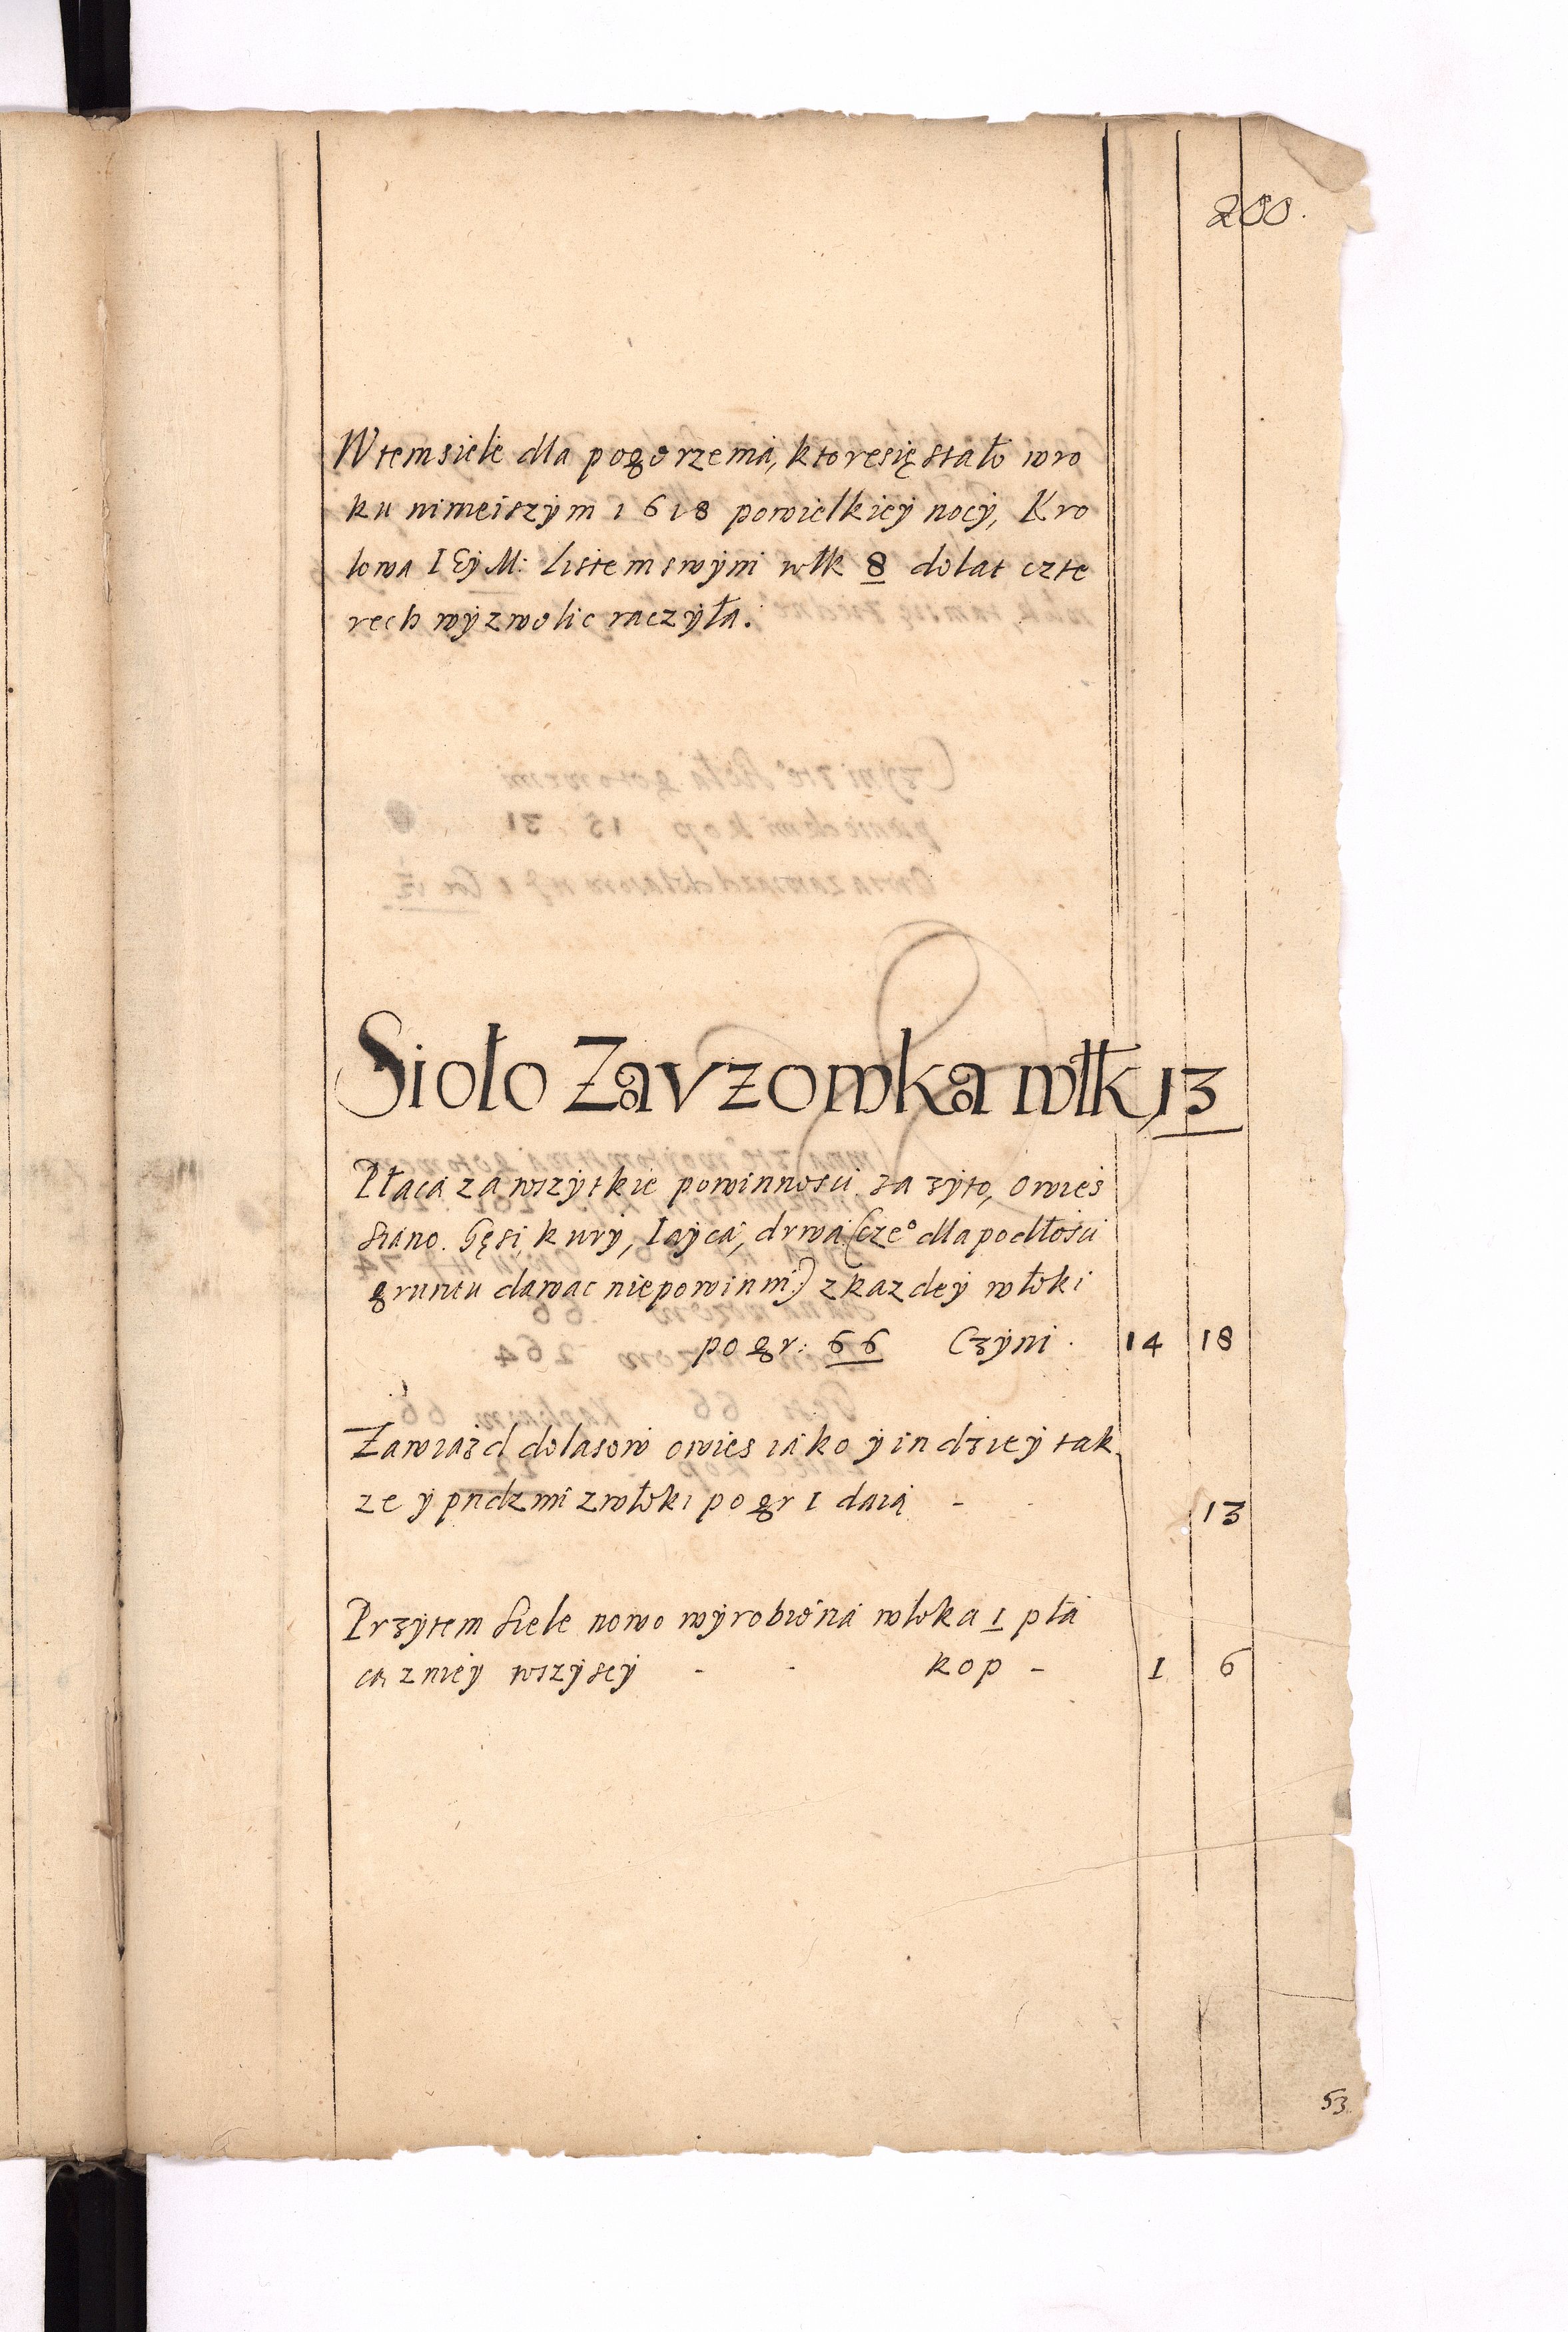 200.
W tem siele dla pogorzenia, ktore się stało w ro
ku ninieiszym 1618 po wielkiey nocy, Kro
lowa I Ey M: listem swym włk 8 do lat czte
rech wyzwolic raczyła.
Sioło Zavzowka włk 13
Płacą za wszytkie powinnosci. za zyto, owies
siano. gęsi, kury, Iayca, drwa (cze° dla podłosci
gruntu dawac niepowinni) z kazdey włoki
po gr: 66 Czyni . 14 18
Za wiazd do lasow owies iako y indziey tak
ze y pndzmi z włoki po gr 1 daią - - 13
Przy tem siele nowo wyrobiona włoka 1 pła
cą z niey wszyscy - - kop - 1 6
53